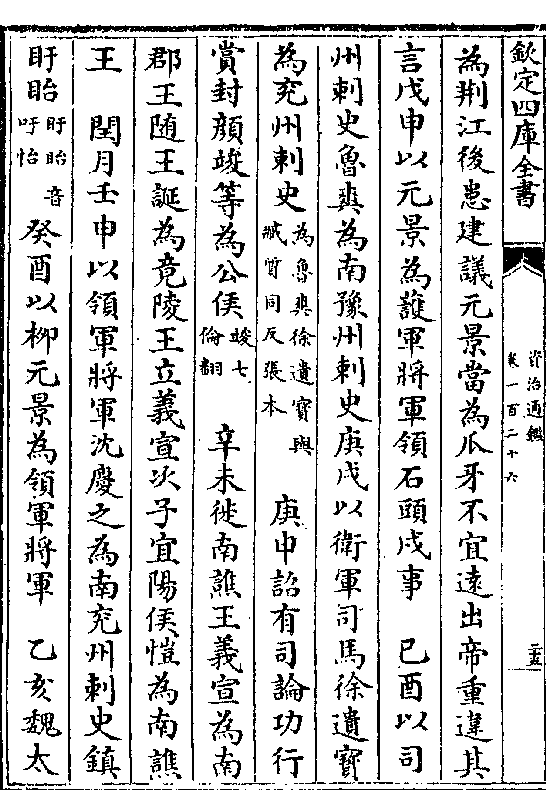 欽定四庫全書
資治通鑑
卷一百二十六
二十五
為荆江後患建議元景當為爪牙不宜遠出帝重違其
言戊申以元景為護軍將軍領石頭戍事　己酉以司
州刺史魯爽為南豫州刺史庚戌以衛軍司馬徐遺寶
為兖州刺史為魯爽徐遺寶與臧質同反張本　庚申詔有司論功行
賞封顔竣等為公侯竣七倫翻　辛未徙南譙王義宣為南
郡王隨王誕為竟陵王立義宣次子宜陽侯愷為南譙
王　閏月壬申以領軍將軍沈慶之為南兖州刺史鎮
盱眙盱眙音吁怡癸酉以柳元景為領軍將軍　乙亥魏太